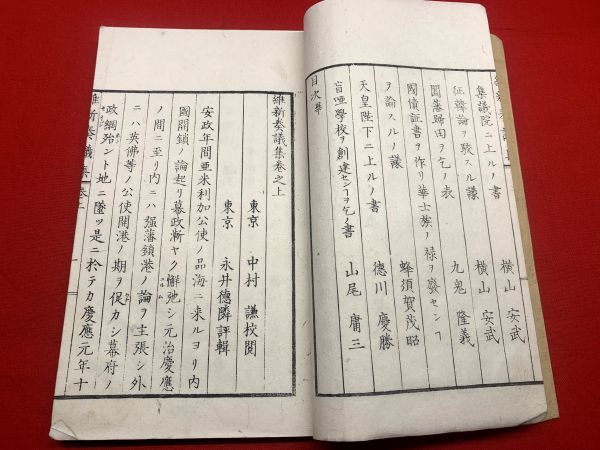 集議院ニ上ルノ書 横山安武
征韓論ヲ駁スル議 横山安武
圖藩歸田ヲ乞ノ表 九鬼隆義
國債証書ヲ作リ華士族ノ禄ヲ廢セン﹁ヲ論スルノ議 蜂須賀茂昭
天皇陛下ニ上ルノ書 德川慶勝
盲唖學校ヲ創建セン﹁ヲ乞ノ書 山尾庸三
目次畢
維新奏議集卷之上
東京 中村謙校閲
東京 永井德隣評輯
安政年間亜米利加公使ノ品海ニ来ルヨリ内
國開鎖ノ論起リ幕政漸ヤク懈弛シ元治慶應
ノ間ニ至リ内ニハ强藩鎖港ノ論ヲ主張シ外
ニハ英佛等ノ公使開港ノ期ヲ促カシ幕府ノ
政綱殆ント地ニ墜ツ是ニ於テカ慶應元年十
維新奏議集